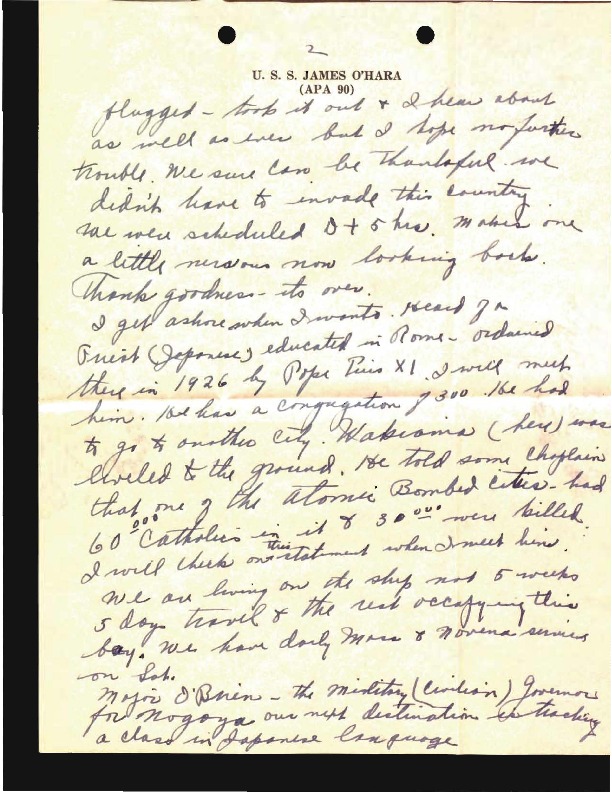 2
U. S. S. JAMES O'HARA
(APA 90)
plugged - took it out & I hear about
as well as ever but I hope no further
trouble. We sure can be thankful we
didn't have to invade this country.
We were scheduled D + 5 hrs. Makes one
a little nervous now looking back.
Thank goodness - its over.
I get ashore when I want to. Heard of a
Priest (Japanese) educated in Rome - ordained
there in 1926 by Pope Pius XI. I will meet
him. He has a congugation of 300. He had
to go to another city. Wakiama (here) was
leveled to the ground. He told some Chaplain
that one of the Atomic Bombed Cities - had
60,000 Catholics in it & 30,000 were killed.
I will check on this statement when I meet him.
We are living on the ship not 5 weeks
5 days travel & the rest occupying this
bay. We have daily Mass & Novena services
on Sat.
Major O'Brien - the military (civilian) Governor
for Nogoya our next destination is teaching
a class in Japanese language